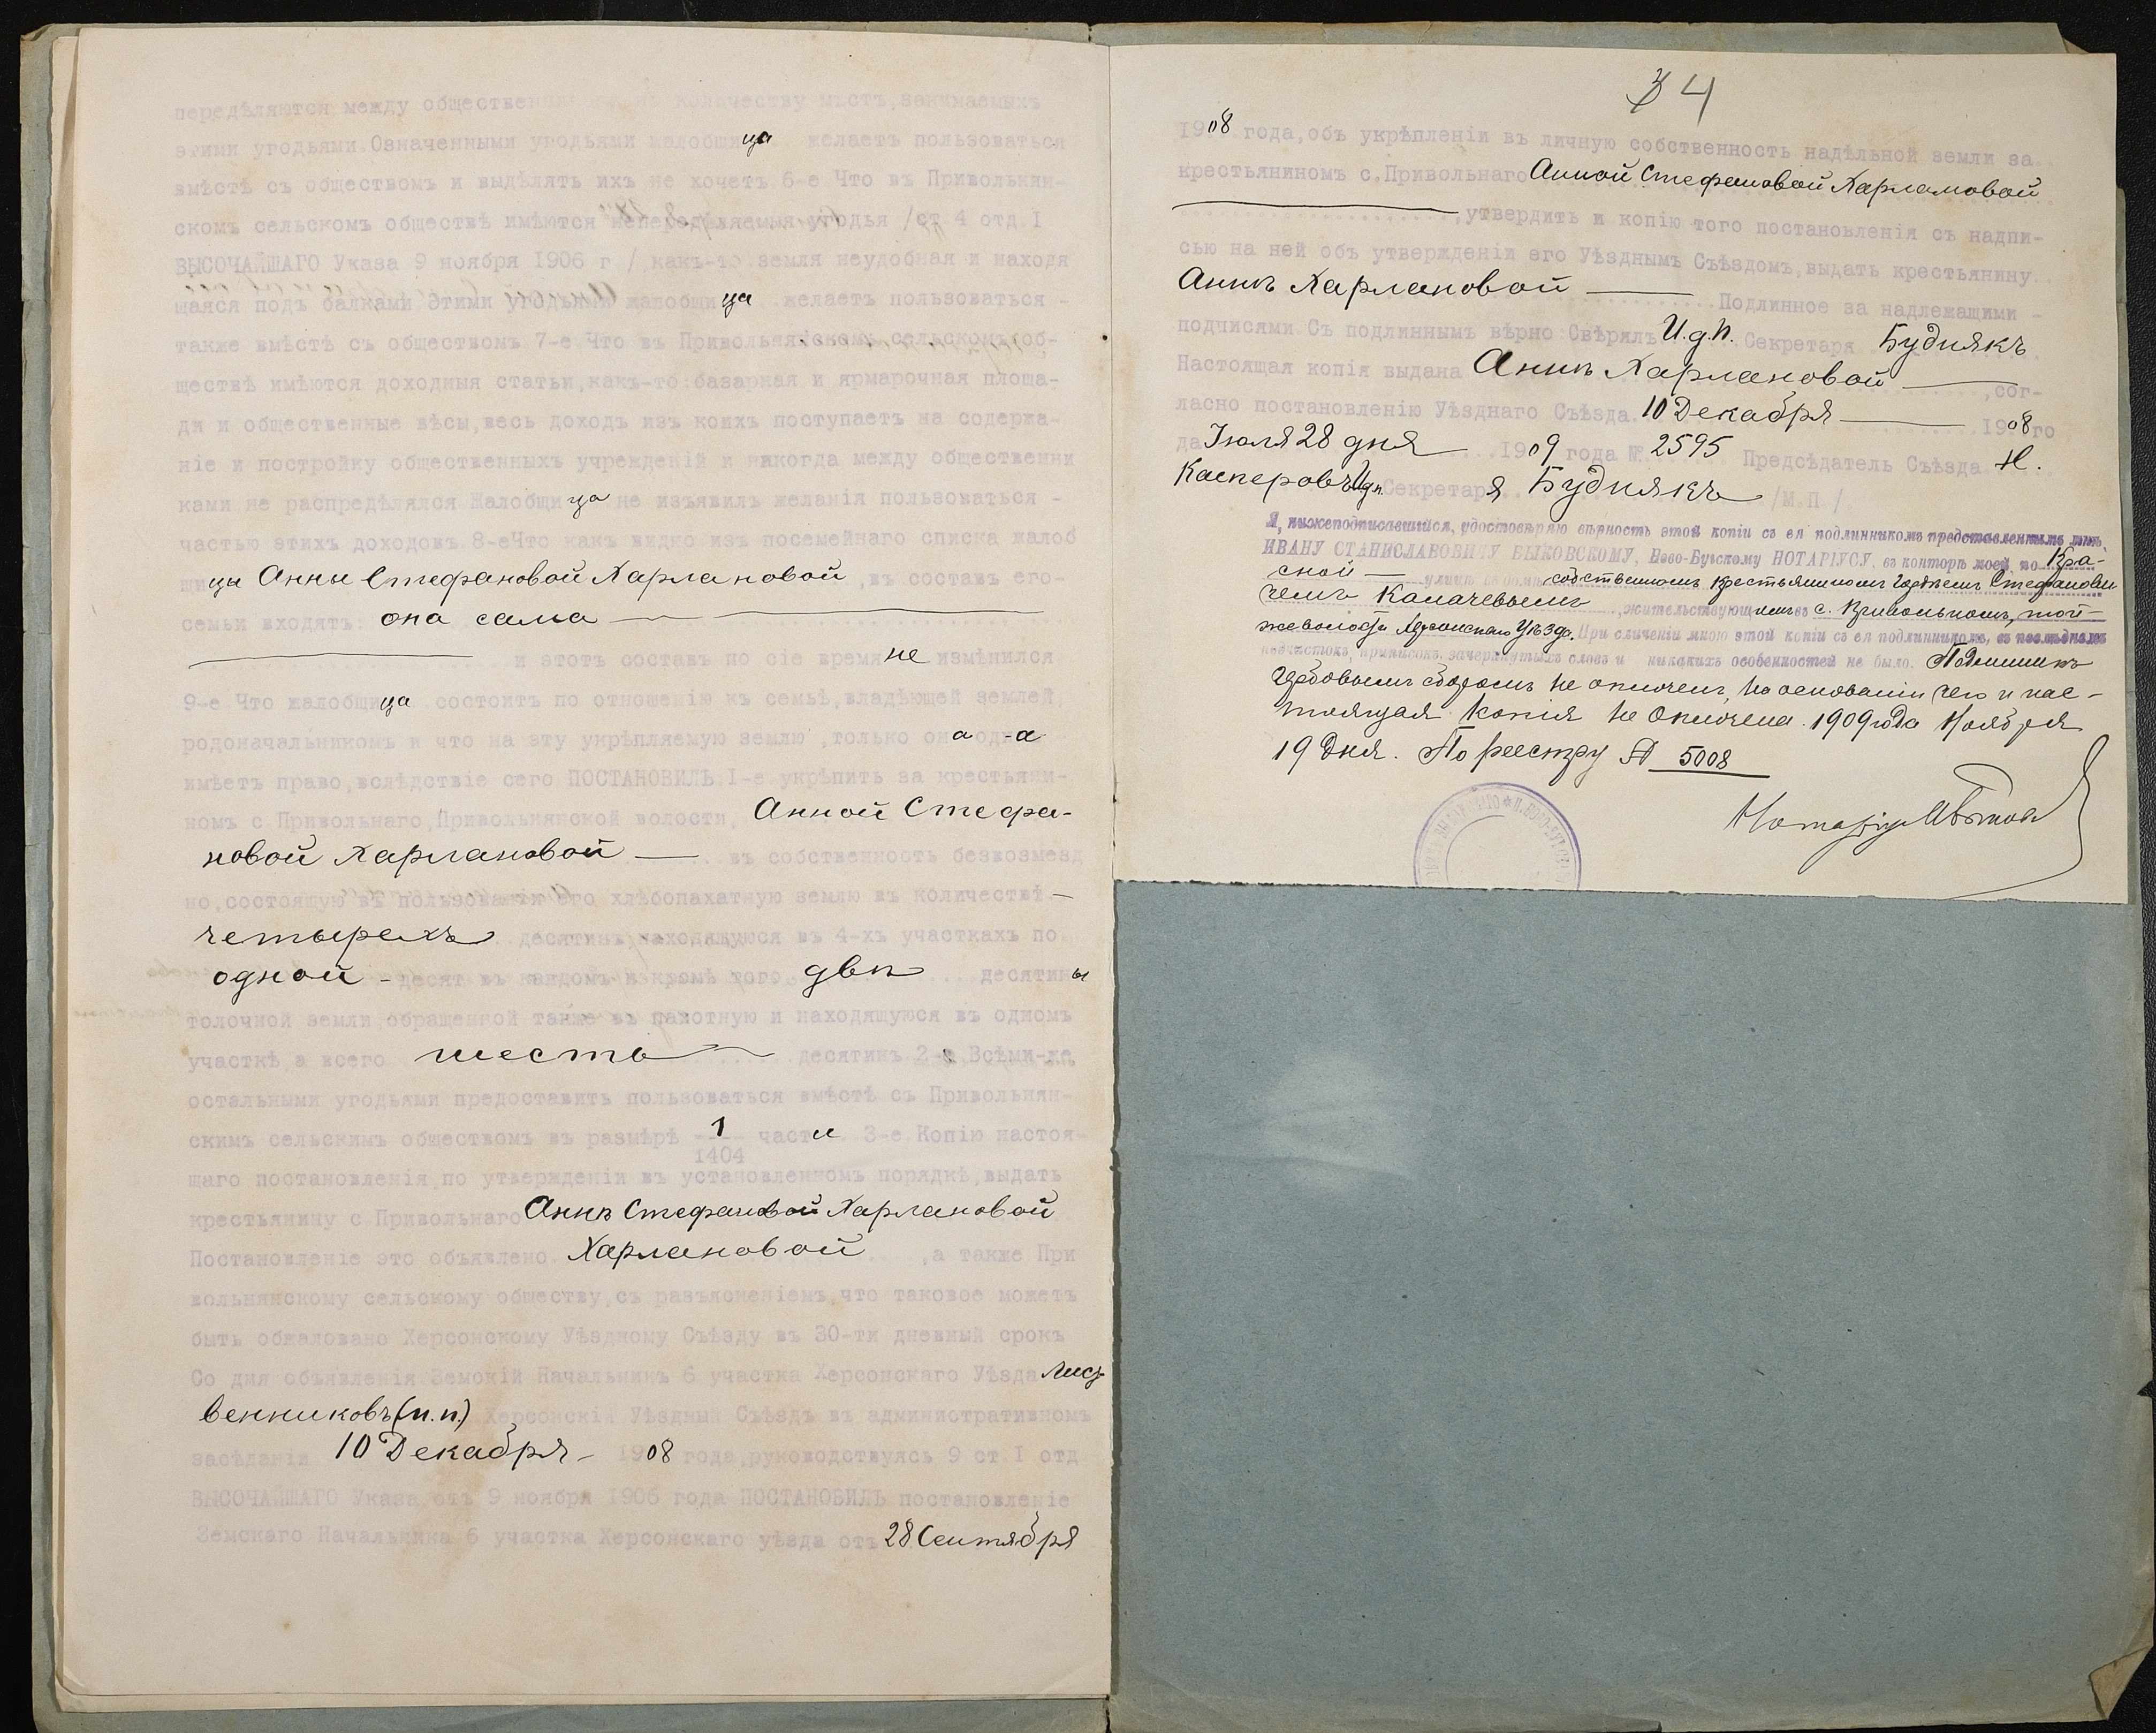 передѣляются между общественниками по количеству мѣстъ, занимаемыхъ
этими угодьями. Означенными угодьями жалобщица желаетъ пользоваться
вмѣстѣ съ обществомъ и выдѣлять ихъ не хочетъ. 6-е Что въ Привольнян-
скомъ сельскомъ обществѣ имѣются непередѣляемыя угодья /ст 4 отд. I
ВЫСОЧАЙШАГО Указа 9 ноября 1906 г / какъ-то земля неудобная и находя
щаяся подъ балками Этими угодьями жалобщица желаетъ пользоваться -
также вмѣстѣ съ обществомъ 7-е Что въ Привольнянскомъ сельскомъ об-
ществѣ имѣются доходныя статьи, какъ-то: базарная и ярмарочная площа-
ди и общественные вѣсы, весь доходъ изъ коихъ поступаетъ на содержа-
ніе и постройку общественныхъ учрежденій и никогда между общественни
ками не распредѣлялся Жалобщица не изъявилъ желанія пользоваться -
частью этихъ доходовъ. 8-е Что какъ видно изъ посемейнаго списка жалоб
щицы Анны Стефановой Харлановой, въ составъ его-
семьи входятъ: она сама
и этотъ составъ по сіе время не измѣнился
9-е Что жалобщица состоитъ по отношенію къ семьѣ, владѣющей землей,
родоначальникомъ и что на эту укрѣпляемую землю, только она одна
имѣетъ право, вслѣдствіе сего ПОСТАНОВИЛЪ: I-е укрѣпить за крестьяни-
номъ с. Привольнаго, Привольнянской волости, Анной Стефа-
новой Харлановой въ собственность безвозмезд
но, состоящую въ пользованіи его хлѣбопахатную землю въ количествѣ -
четырехъ десятинъ, находящуюся въ 4-хъ участкахъ по
одной - десят въ каждомъ и кромѣ того двѣ десятины
толочной земли, обращенной также въ пахотную и находящуюся въ одномъ
участкѣ, а всего шесть десятинъ 2-е Всѣми-же
остальными угодьями предоставить пользоваться вмѣстѣ съ Привольнян-
скимъ сельскимъ обществомъ въ размѣрѣ 1/1404 части 3-е Копію настоя-
щаго постановленія, по утвержденіи въ установленномъ порядкѣ, выдать
крестьянину с Привольнаго Аннѣ Стефановой Харлановой
Постановленіе это объявлено Харлановой, а также При
вольнянскому сельскому обществу, съ разъясненіемъ, что таковое можетъ
быть обжаловано Херсонскому Уѣздному Съѣзду въ 30-ти дневный срокъ
Со дня объявленія Земскій Начальникъ 6 участка Херсонскаго Уѣзда Лист-
венниковъ (п.п.) Херсонскій Уѣздный Съѣздъ въ административномъ
засѣданіи 10 Декабря - 1908 года, руководствуясь 9 ст I отд
ВЫСОЧАЙШАГО Указа отъ 9 ноября 1906 года ПОСТАНОВИЛЪ постановленіе
Земскаго Начальника 6 участка Херсонскаго уѣзда отъ 28 Сентября
4
1908 года, объ укрѣпленіи въ личную собственность надѣльной земли за
крестьяниномъ с. Привольнаго Анной Стефановой Харламовой
, утвердить и копію того постановленія съ надпи-
сью на ней объ утвержденіи его Уѣзднымъ Съѣздомъ, выдать крестьянину
Аннѣ Харлановой Подлинное за надлежащими -
подписями Съ подлиннымъ вѣрно Свѣрилъ И.д.п. Секретаря Буднякъ
Настоящая копія выдана Аннѣ Харлановой, сог-
ласно постановленію Уѣзднаго Съѣзда 10 Декабря 1908 го
да Іюля 28 дня 1909 года №. 2595 Предсѣдатель Съѣзда Н.
Касперовъ И.д.п. Секретаря Буднякъ /М.П./
Я, нижеподписавшійся, удостовѣряю вѣрность этой копіи съ ея подлинникомъ представленнымъ мнѣ,
ИВАНУ СТАНИСЛАВОВИЧУ БЫКОВСКОМУ, Ново-Бугскому НОТАРІУСУ, въ конторѣ моей, по Кра-
сной улицѣ въ домѣ собственномъ крестьяниномъ Стефанови-
чемъ Калачевымъ, жительствующимъ въ с. Привольномъ, той-
же волости Херсонскаго Уѣзда. При сличеніи мною этой копіи съ ея подлинникомъ, въ послѣднемъ
подчистокъ, приписокъ, зачеркнутыхъ словъ и никакихъ особенностей не было. Подлинникъ
гербовымъ сборомъ не оплоченъ, на основаніи чего и нас-
тоящая копія не оплочена. 1909 года Ноября
19 дня. По реестру № 5008
Нотаріусъ